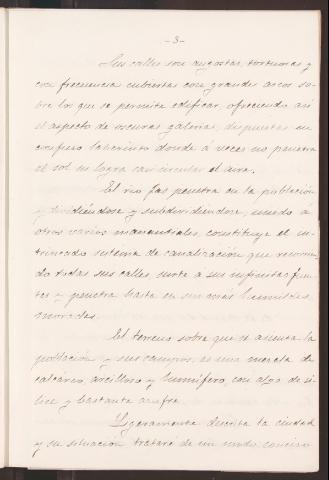 -3-
Sus calles son angostas, tortuosas y
con frecuencia cubiertas con grandes arcos so-
bre los que se permite edificar, ofreciendo así
el aspecto de oscuras galerias, dispuestas en
confuso laberinto donde á veces no penetra
el sol ni logra casi circular el aire.
El rio Fas penetra en la poblacion
y dividiéndose y subdividiéndose, unido á
otros varios manantiales, constituye el in-
trincado sistema de canalización que recorrien-
do todas sus calles, surte á sus infinitas fuen-
tes y penetra hasta en sus más humildes
moradas.
El terreno sobre que se asienta la
poblacion y sus campos, es una mezcla de
calcáreo, arcilloso y humífero, con algo de si-
lice y bastante azufre.
Ligeramente descrita la ciudad
y su situación trataré de un modo conciso